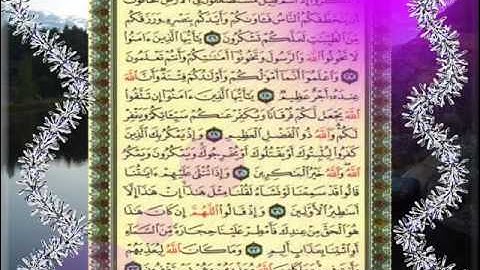 وَاذْكُرُوا إِذْ أَنتُمْ قَلِيلٌ مُّسْتَضْعَفُونَ فِي الْأَرْضِ تَخَافُونَ
أَن يَتَخَطَّفَكُمُ النَّاسُ فَآوَاكُمْ وَأَيَّدَكُم بِنَصْرِهِ وَرَزَقَكُم
مِّنَ الطَّيِّبَاتِ لَعَلَّكُمْ تَشْكُرُونَ ٢٦ يَا أَيُّهَا الَّذِينَ آمَنُوا
لَا تَخُونُوا اللَّهَ وَالرَّسُولَ وَتَخُونُوا أَمَانَاتِكُمْ وَأَنتُمْ تَعْلَمُونَ
٢٧ وَاعْلَمُوا أَنَّمَا أَمْوَالُكُمْ وَأَوْلَادُكُمْ فِتْنَةٌ وَأَنَّ اللَّهَ
عِندَهُ أَجْرٌ عَظِيمٌ ٢٨ يَا أَيُّهَا الَّذِينَ آمَنُوا إِن تَتَّقُوا
اللَّهَ يَجْعَل لَّكُمْ فُرْقَانًا وَيُكَفِّرْ عَنكُمْ سَيِّئَاتِكُمْ وَيَغْفِرْ
لَكُمْ وَاللَّهُ ذُو الْفَضْلِ الْعَظِيمِ ٢٩ وَإِذْ يَمْكُرُ بِكَ الَّذِينَ
كَفَرُوا لِيُثْبِتُوكَ أَوْ يَقْتُلُوكَ أَوْ يُخْرِجُوكَ وَيَمْكُرُونَ وَيَمْكُرُ
اللَّهُ وَاللَّهُ خَيْرُ الْمَاكِرِينَ ٣٠ وَإِذَا تُتْلَىٰ عَلَيْهِمْ آيَاتُنَا
قَالُوا قَدْ سَمِعْنَا لَوْ نَشَاءُ لَقُلْنَا مِثْلَ هَٰذَا إِنْ هَٰذَا إِلَّا
أَسَاطِيرُ الْأَوَّلِينَ ٣١ وَإِذْ قَالُوا اللَّهُمَّ إِن كَانَ هَٰذَا
هُوَ الْحَقَّ مِنْ عِندِكَ فَأَمْطِرْ عَلَيْنَا حِجَارَةً مِّنَ السَّمَاءِ
أَوِ ائْتِنَا بِعَذَابٍ أَلِيمٍ ٣٢ وَمَا كَانَ اللَّهُ لِيُعَذِّبَهُمْ
وَأَنتَ فِيهِمْ وَمَا كَانَ اللَّهُ مُعَذِّبَهُمْ وَهُمْ يَسْتَغْفِرُونَ